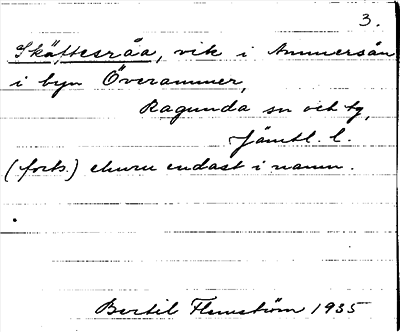 3.
Skåttesråa, vik i Ammersån
i byn Överammer,
Ragunda sn och tg,
Jämtl. l.
(forts.) ehuru endast i namn.
Bertil Flemström 1935